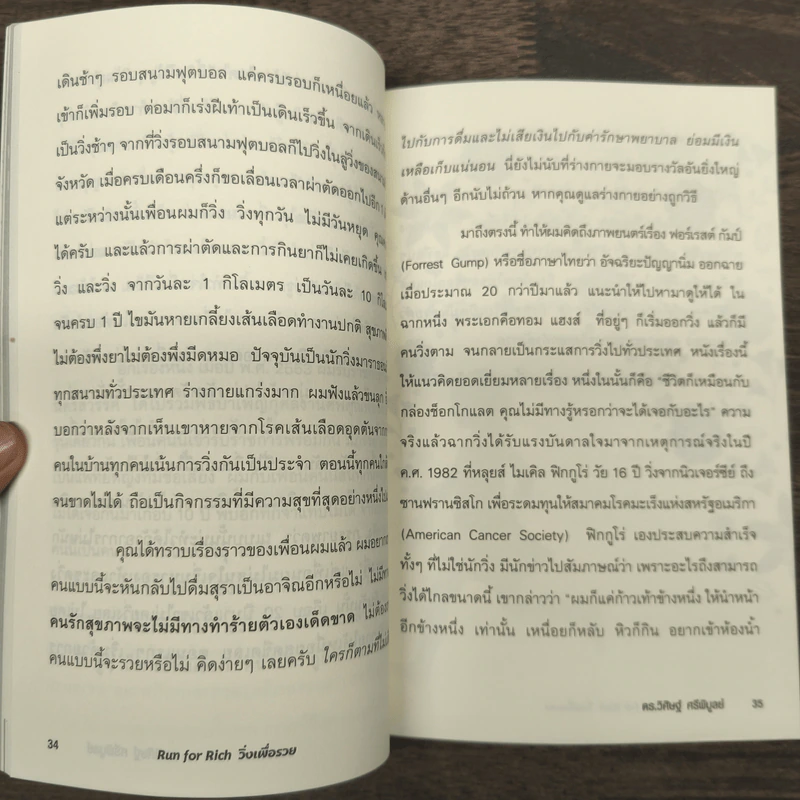 เดินช้าๆ รอบสนามฟุตบอล แค่ครบรอบก็เหนื่อยแล้ว
เข้าก็เพิ่มรอบ ต่อมาก็เร่งฝีเท้าเป็นเดินเร็วขึ้น จากเดินเร็ว
เป็นวิ่งช้าๆ จากที่วิ่งรอบสนามฟุตบอลก็ไปวิ่งในลู่วิ่งของสนาม
จังหวัด เมื่อครบเดือนครึ่งก็ขอเลื่อนเวลาผ่าตัดออกไปอีก
แต่ระหว่างนั้นเพื่อนผมก็วิ่ง วิ่งทุกวัน ไม่มีวันหยุด
ได้ครับ และแล้วการผ่าตัดและการกินยาก็ไม่เคยเกิดขึ้น
วิ่ง และวิ่ง จากวันละ 1 กิโลเมตร เป็นวันละ 10
จนครบ 1 ปี ไขมันหายเกลี้ยงเส้นเลือดทำงานปกติ
ไม่ต้องพึ่งยาไม่ต้องพึ่งมีดหมอ ปัจจุบันเป็นนักวิ่งมาราธอน
ทุกสนามทั่วประเทศ ร่างกายแกร่งมาก ผมฟังแล้วขนลุก
บอกว่าหลังจากเห็นเขาหายจากโรคเส้นเลือดอุดตัน
คนในบ้านทุกคนเน้นการวิ่งกันเป็นประจำ ตอนนี้ทุกคน
จนขาดไม่ได้ ถือเป็นกิจกรรมที่มีความสุขที่สุดอย่างหนึ่ง
คุณได้ทราบเรื่องราวของเพื่อนผมแล้ว ผมอยาก
คนแบบนี้จะหันกลับไปดื่มสุราเป็นอาจิณอีกหรือไม่
คนรักสุขภาพจะไม่มีทางทำร้ายตัวเองเด็ดขาด ไม่ต้อง
คนแบบนี้จะรวยหรือไม่ คิดง่ายๆ เลยครับ ใครก็ตามที่
34
Run for Rich วิ่งเพื่อรวย
ไปกับการดื่มและไม่เสียเงินไปกับค่ารักษาพยาบาล ย่อมมีเงิน
เหลือเก็บแน่นอน นี่ยังไม่นับที่ร่างกายจะมอบรางวัลอันยิ่งใหญ่
ด้านอื่นๆ อีกนับไม่ถ้วน หากคุณดูแลร่างกายอย่างถูกวิธี
มาถึงตรงนี้ ทำให้ผมคิดถึงภาพยนตร์เรื่อง ฟอร์เรสต์ กัมป์
(Forrest Gump) หรือชื่อภาษาไทยว่า อัจฉริยะปัญญานิ่ม ออกฉาย
เมื่อประมาณ 20 กว่าปีมาแล้ว แนะนำให้ไปหามาดูให้ได้ ใน
ฉากหนึ่ง พระเอกคือทอม แฮงส์ ที่อยู่ๆ ก็เริ่มออกวิ่ง แล้วก็มี
คนวิ่งตาม จนกลายเป็นกระแสการวิ่งไปทั่วประเทศ หนังเรื่องนี้
ให้แนวคิดยอดเยี่ยมหลายเรื่อง หนึ่งในนั้นก็คือ "ชีวิตก็เหมือนกับ
กล่องช็อกโกแลต คุณไม่มีทางรู้หรอกว่าจะได้เจอกับอะไร" ความ
จริงแล้วฉากวิ่งได้รับแรงบันดาลใจมาจากเหตุการณ์จริงในปี
ค.ศ. 1982 ที่หลุยส์ ไมเคิล ฟิกกูโร่ วัย 16 ปี วิ่งจากนิวเจอร์ซีย์ ถึง
ซานฟรานซิสโก เพื่อระดมทุนให้สมาคมโรคมะเร็งแห่งสหรัฐอเมริกา
(American Cancer Society) ฟิกกูโร่ เองประสบความสำเร็จ
ทั้งๆ ที่ไม่ใช่นักวิ่ง มีนักข่าวไปสัมภาษณ์ว่า เพราะอะไรถึงสามารถ
วิ่งได้ไกลขนาดนี้ เขากล่าวว่า "ผมก็แค่ก้าวเท้าข้างหนึ่ง ให้นำหน้า
อีกข้างหนึ่ง เท่านั้น เหนื่อยก็หลับ หิวก็กิน อยากเข้าห้องน้ำ
ดร.วิศิษฐ์ ศรีพิบูลย์ 35